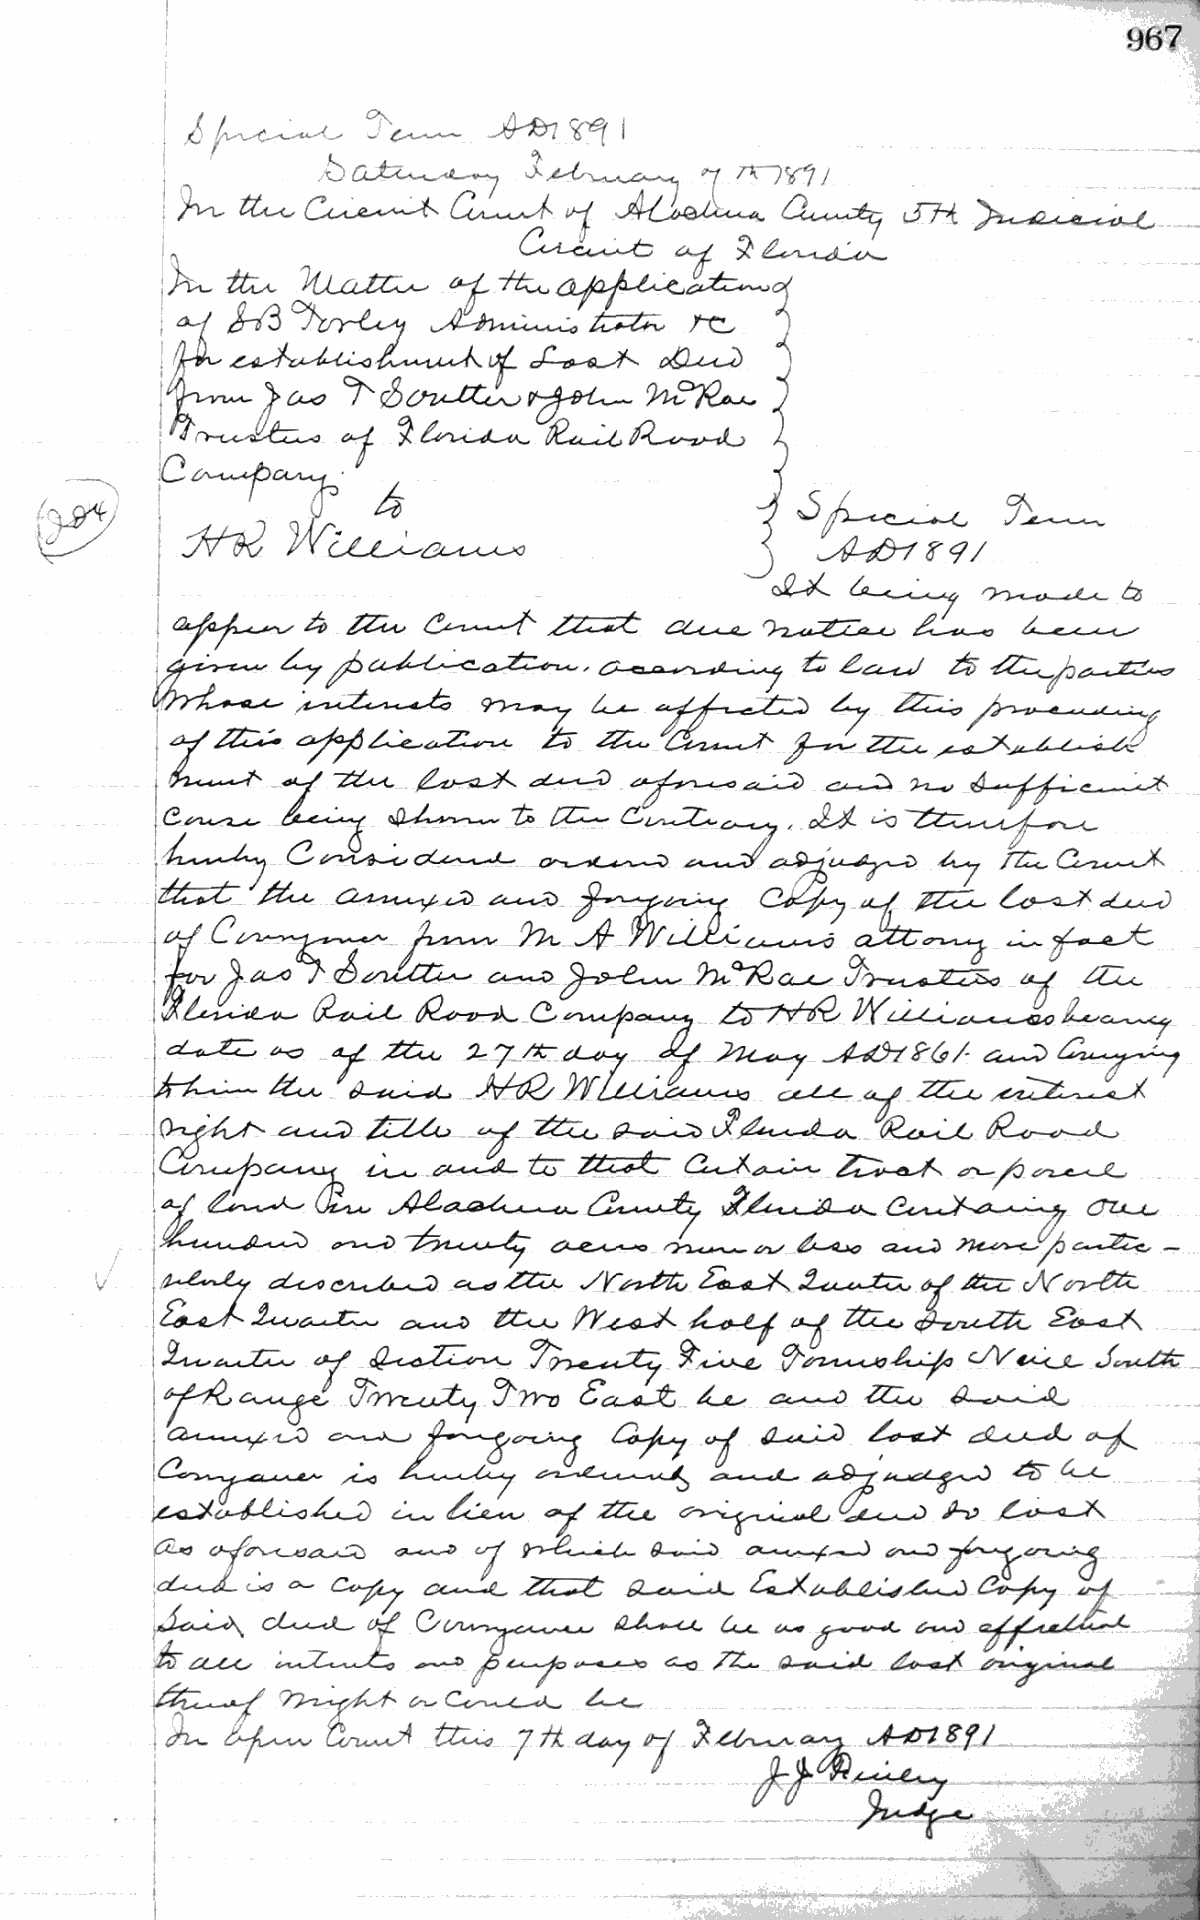 967
Special Term AD 1891
Saturday February 7th 1891
In the Circuit Court of Alachua County 5th Judicial
Circuit of Florida
In the Matter of the application
of SB Torley Administrator &c
for establishment of Lost Deed
from Jas T Soutter & John McRae
Trustees of Florida Rail Road
Company
to
HR Williams
Special Term
AD 1891
It being made to
appear to the Court that due notice has been
given by publication, according to law to the parties
whose interests may be affected by this proceeding
of this application to the Court for the establish
ment of the lost deed aforesaid and no sufficient
cause being shown to the Contrary. It is therefore
hereby Considered ordered and adjudged by the Court
that the annexed and foregoing Copy of the lost deed
of Conveyance from M A Williams attorny in fact
for Jas T Soutter and John McRae Trustees of the
Florida Rail Road Company to HR Williams bearing
date as of the 27th day of May AD 1861 and Conveying
to him the said HR Williams all of the interest
right and title of the said Florida Rail Road
Company in and to that Certain tract or parcel
of land in Alachua County Florida Containing One
hundred and twenty acres more or less and more partic-
ularly described as the North East Quarter of the North
East Quarter and the West half of the South East
Quarter of Section Twenty Five Township Nine South
of Range Twenty Two East be and the said
annexed and foregoing Copy of said lost deed of
Conveyance is hereby ordered and adjudged to be
established in lieu of the original deed so lost
as aforesaid and of which said annexed and foregoing
deed is a Copy and that said Established Copy of
Said deed of Conveyance shall be as good and effectual
to all intents and purposes as the said lost original
thereof might or Could be
In open Court this 7th day of February AD 1891
J J Finley
Judge